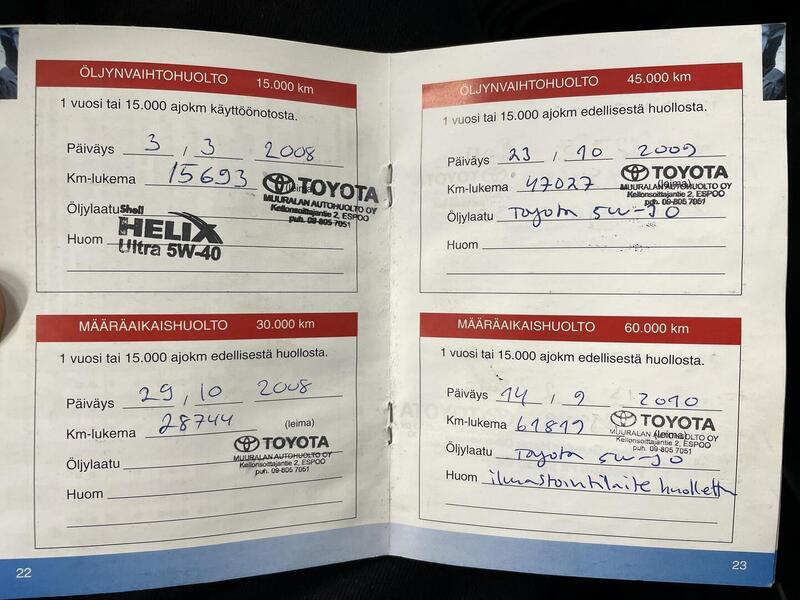 ÖLJYNVAIHTOHUOLTO 15.000 km
1 vuosi tai 15.000 ajokm käyttöönotosta.
Päiväys 3 / 3 2008
Km-lukema 15693 (leima)
TOYOTA
MUURALAN AUTOHUOLTO OY
Kellonsoittajantie 2, ESPOO
puh. 09-805 7051
Öljylaatu Shell
HELIX
Ultra 5W-40
Huom
MÄÄRÄAIKAISHUOLTO 30.000 km
1 vuosi tai 15.000 ajokm edellisestä huollosta.
Päiväys 29, 10 2008
Km-lukema 28744 (leima)
TOYOTA
MUURALAN AUTOHUOLTO OY
Kellonsoittajantie 2, ESPOO
puh. 09-805 7051
Öljylaatu
Huom
22
ÖLJYNVAIHTOHUOLTO 45.000 km
1 vuosi tai 15.000 ajokm edellisestä huollosta.
Päiväys 23 / 10 2009
Km-lukema 47027 (leima)
TOYOTA
MUURALAN AUTOHUOLTO OY
Kellonsoittajantie 2, ESPOO
puh. 09-805 7051
Öljylaatu Toyota 5W-30
Huom
MÄÄRÄAIKAISHUOLTO 60.000 km
1 vuosi tai 15.000 ajokm edellisestä huollosta.
Päiväys 14 / 9 2010
Km-lukema 61819 (leima)
TOYOTA
MUURALAN AUTOHUOLTO OY
Kellonsoittajantie 2, ESPOO
puh. 09-805 7051
Öljylaatu Toyota 5W-30
Huom ilmastointilaite huollettu
23